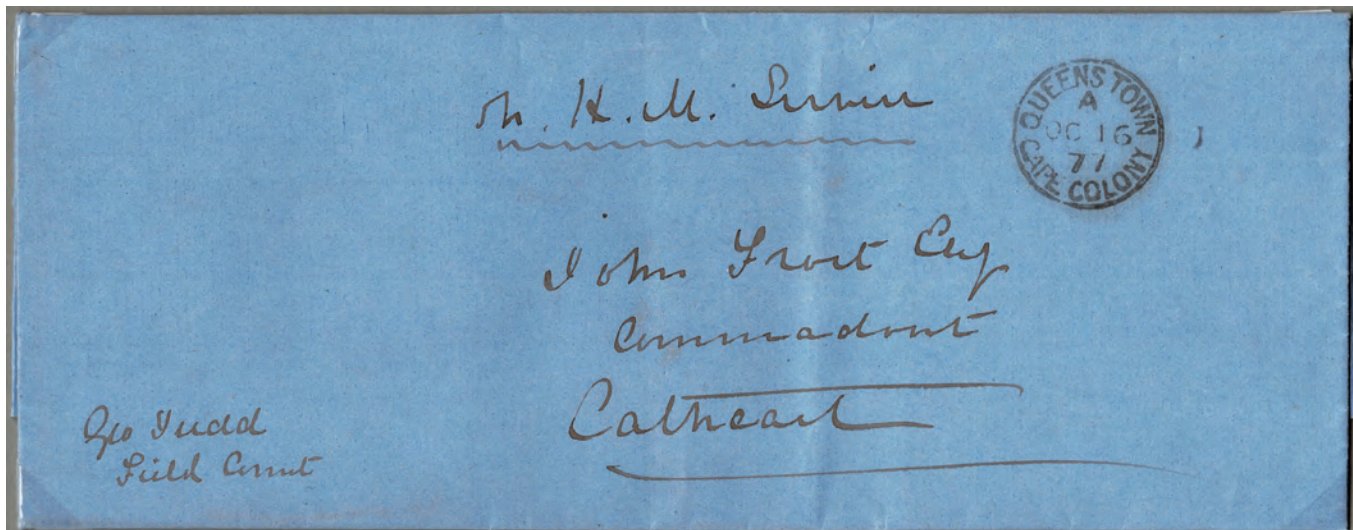 On H.M. Service
QUEENS TOWN
A
OC 16
77
CAPE COLONY
John Frost Esq
Commadont
Cathcart
Geo Judd
Field Cornet